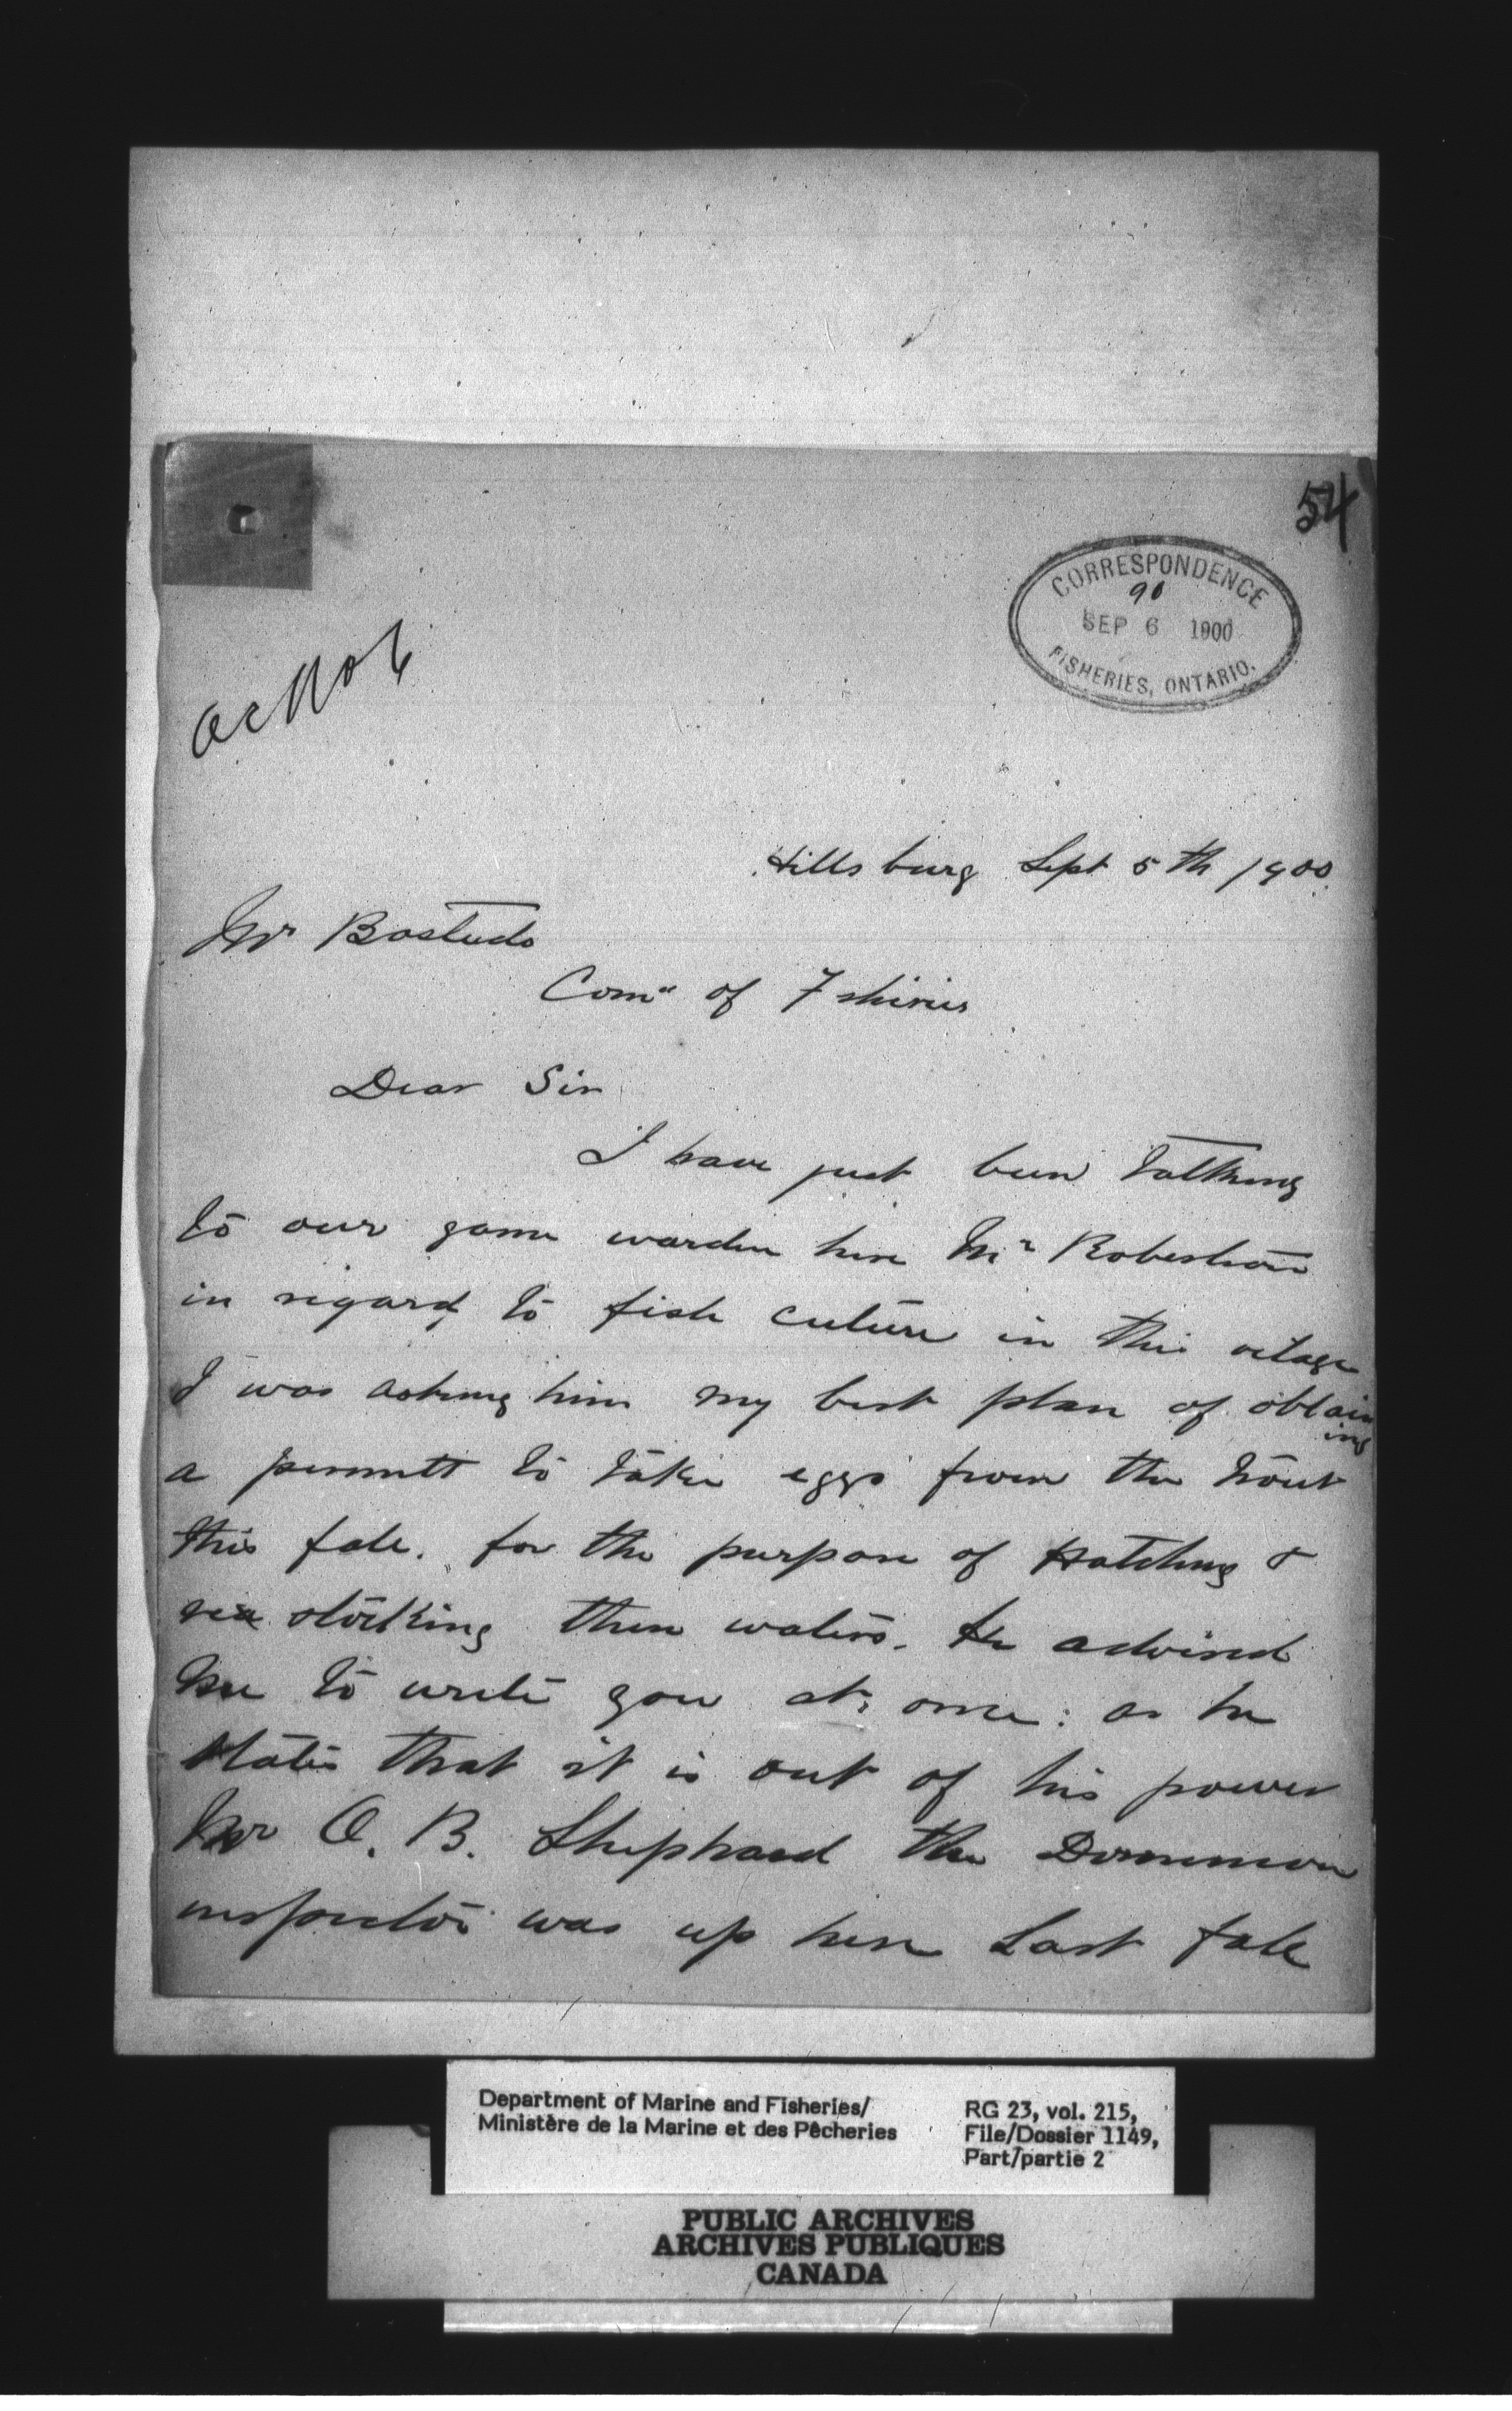 54
CORRESPONDENCE
90
SEP 6 1900
FISHERIES, ONTARIO.
Hillsburg Sept 5th 1900
Mr Bastedo
Comr of Fshiries
Dear Sir
I have just been talking
to our game warden here Mr Robertson
in regard to fish culture in this vilage
I was asking him my best plan of obtain
ing
a permitt to take eggs from the trout
this fall. for the purpose of Hatching &
re stocking these waters. He advised
me to write you at once: as he
states that it is out of his power
Mr O. B. Shephard the Dominion
inspector was up here Last fall
Department of Marine and Fisheries/
Ministère de la Marine et des Pêcheries
RG 23, vol. 215,
File/Dossier 1149,
Part/partie 2
PUBLIC ARCHIVES
ARCHIVES PUBLIQUES
CANADA